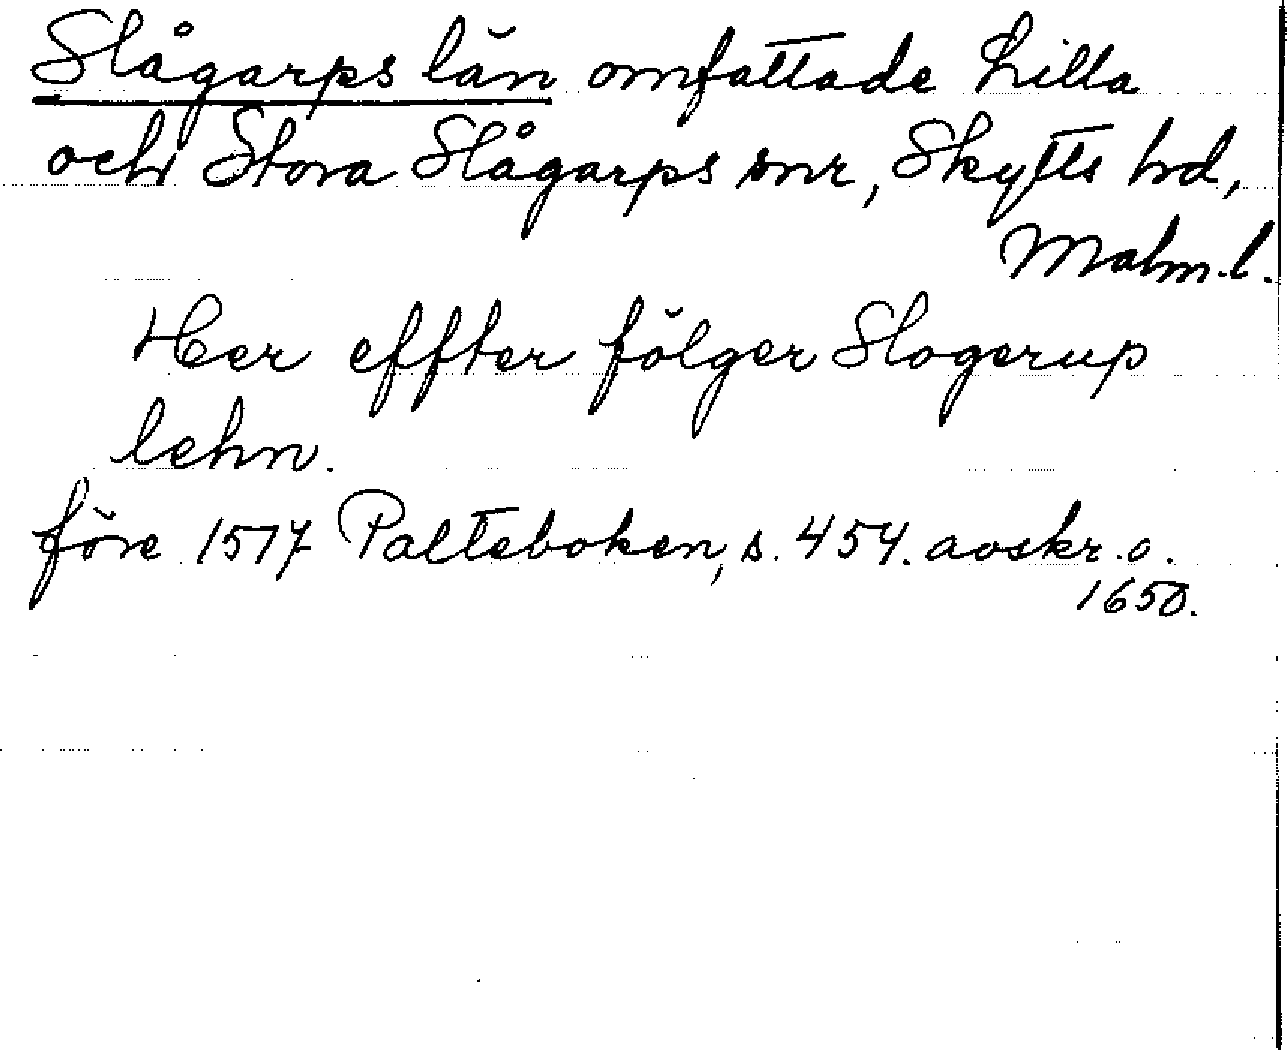 Slågarps län omfattade Lilla
och Stora Slågarps snr, Skytts hd,
Malm.l.
Her effter fölger Slogerup
lehn.
före 1517 Palteboken, s. 454. avskr. o.
1650.